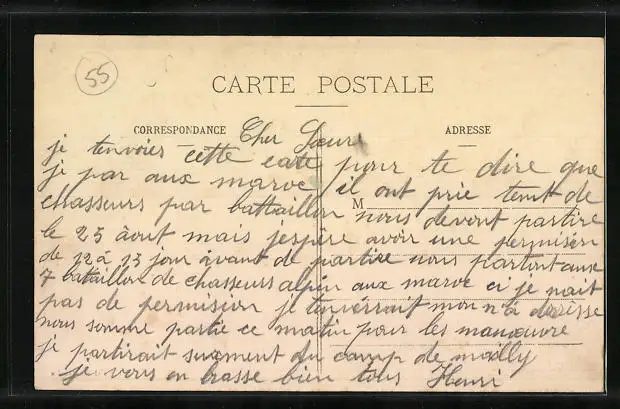 55
CARTE POSTALE
CORRESPONDANCE
ADRESSE
M
Cher Soeur
je tenvoies cette carte pour te dire que
je par aux maroc il ont prie tent de
chasseurs par battaillon nous devont partire
le 25 août mais jespère avoir une permision
de 12 à 15 jour avant de partire nous partont avec
7 bataillon de chasseurs alpin aux maroc ci je nait
pas de permision je tenverrait mon n'a drèsse
nous somme partie ce matin pour les manœuvre
je partirait surement du camp de mailly
je vous en brasse bien tous Henri